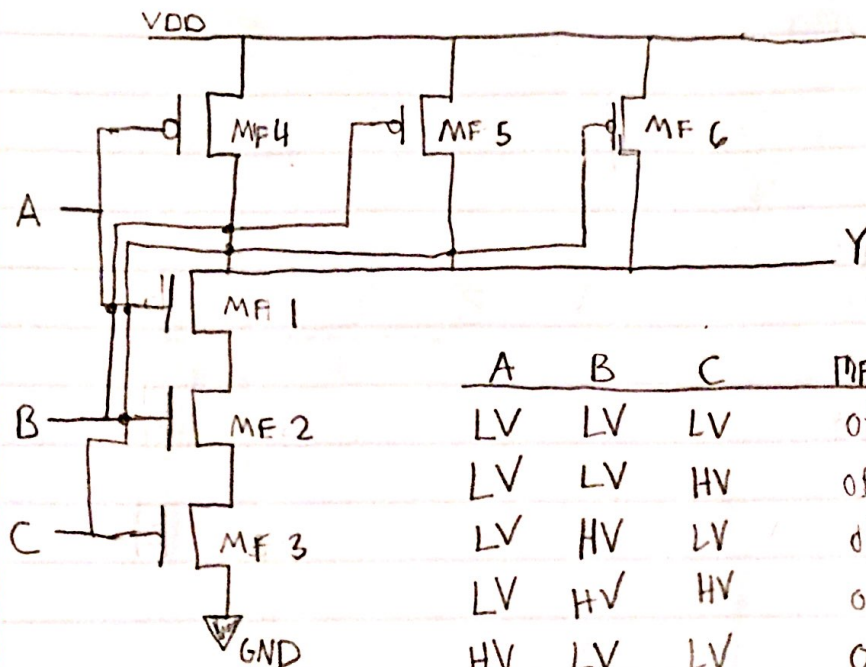 VDD
MF4
MF 5
MF 6
A
Y
MF 1
B
MF 2
C
MF 3
GND
A B C MF
LV LV LV
LV LV HV
LV HV LV
LV HV HV
HV LV LV